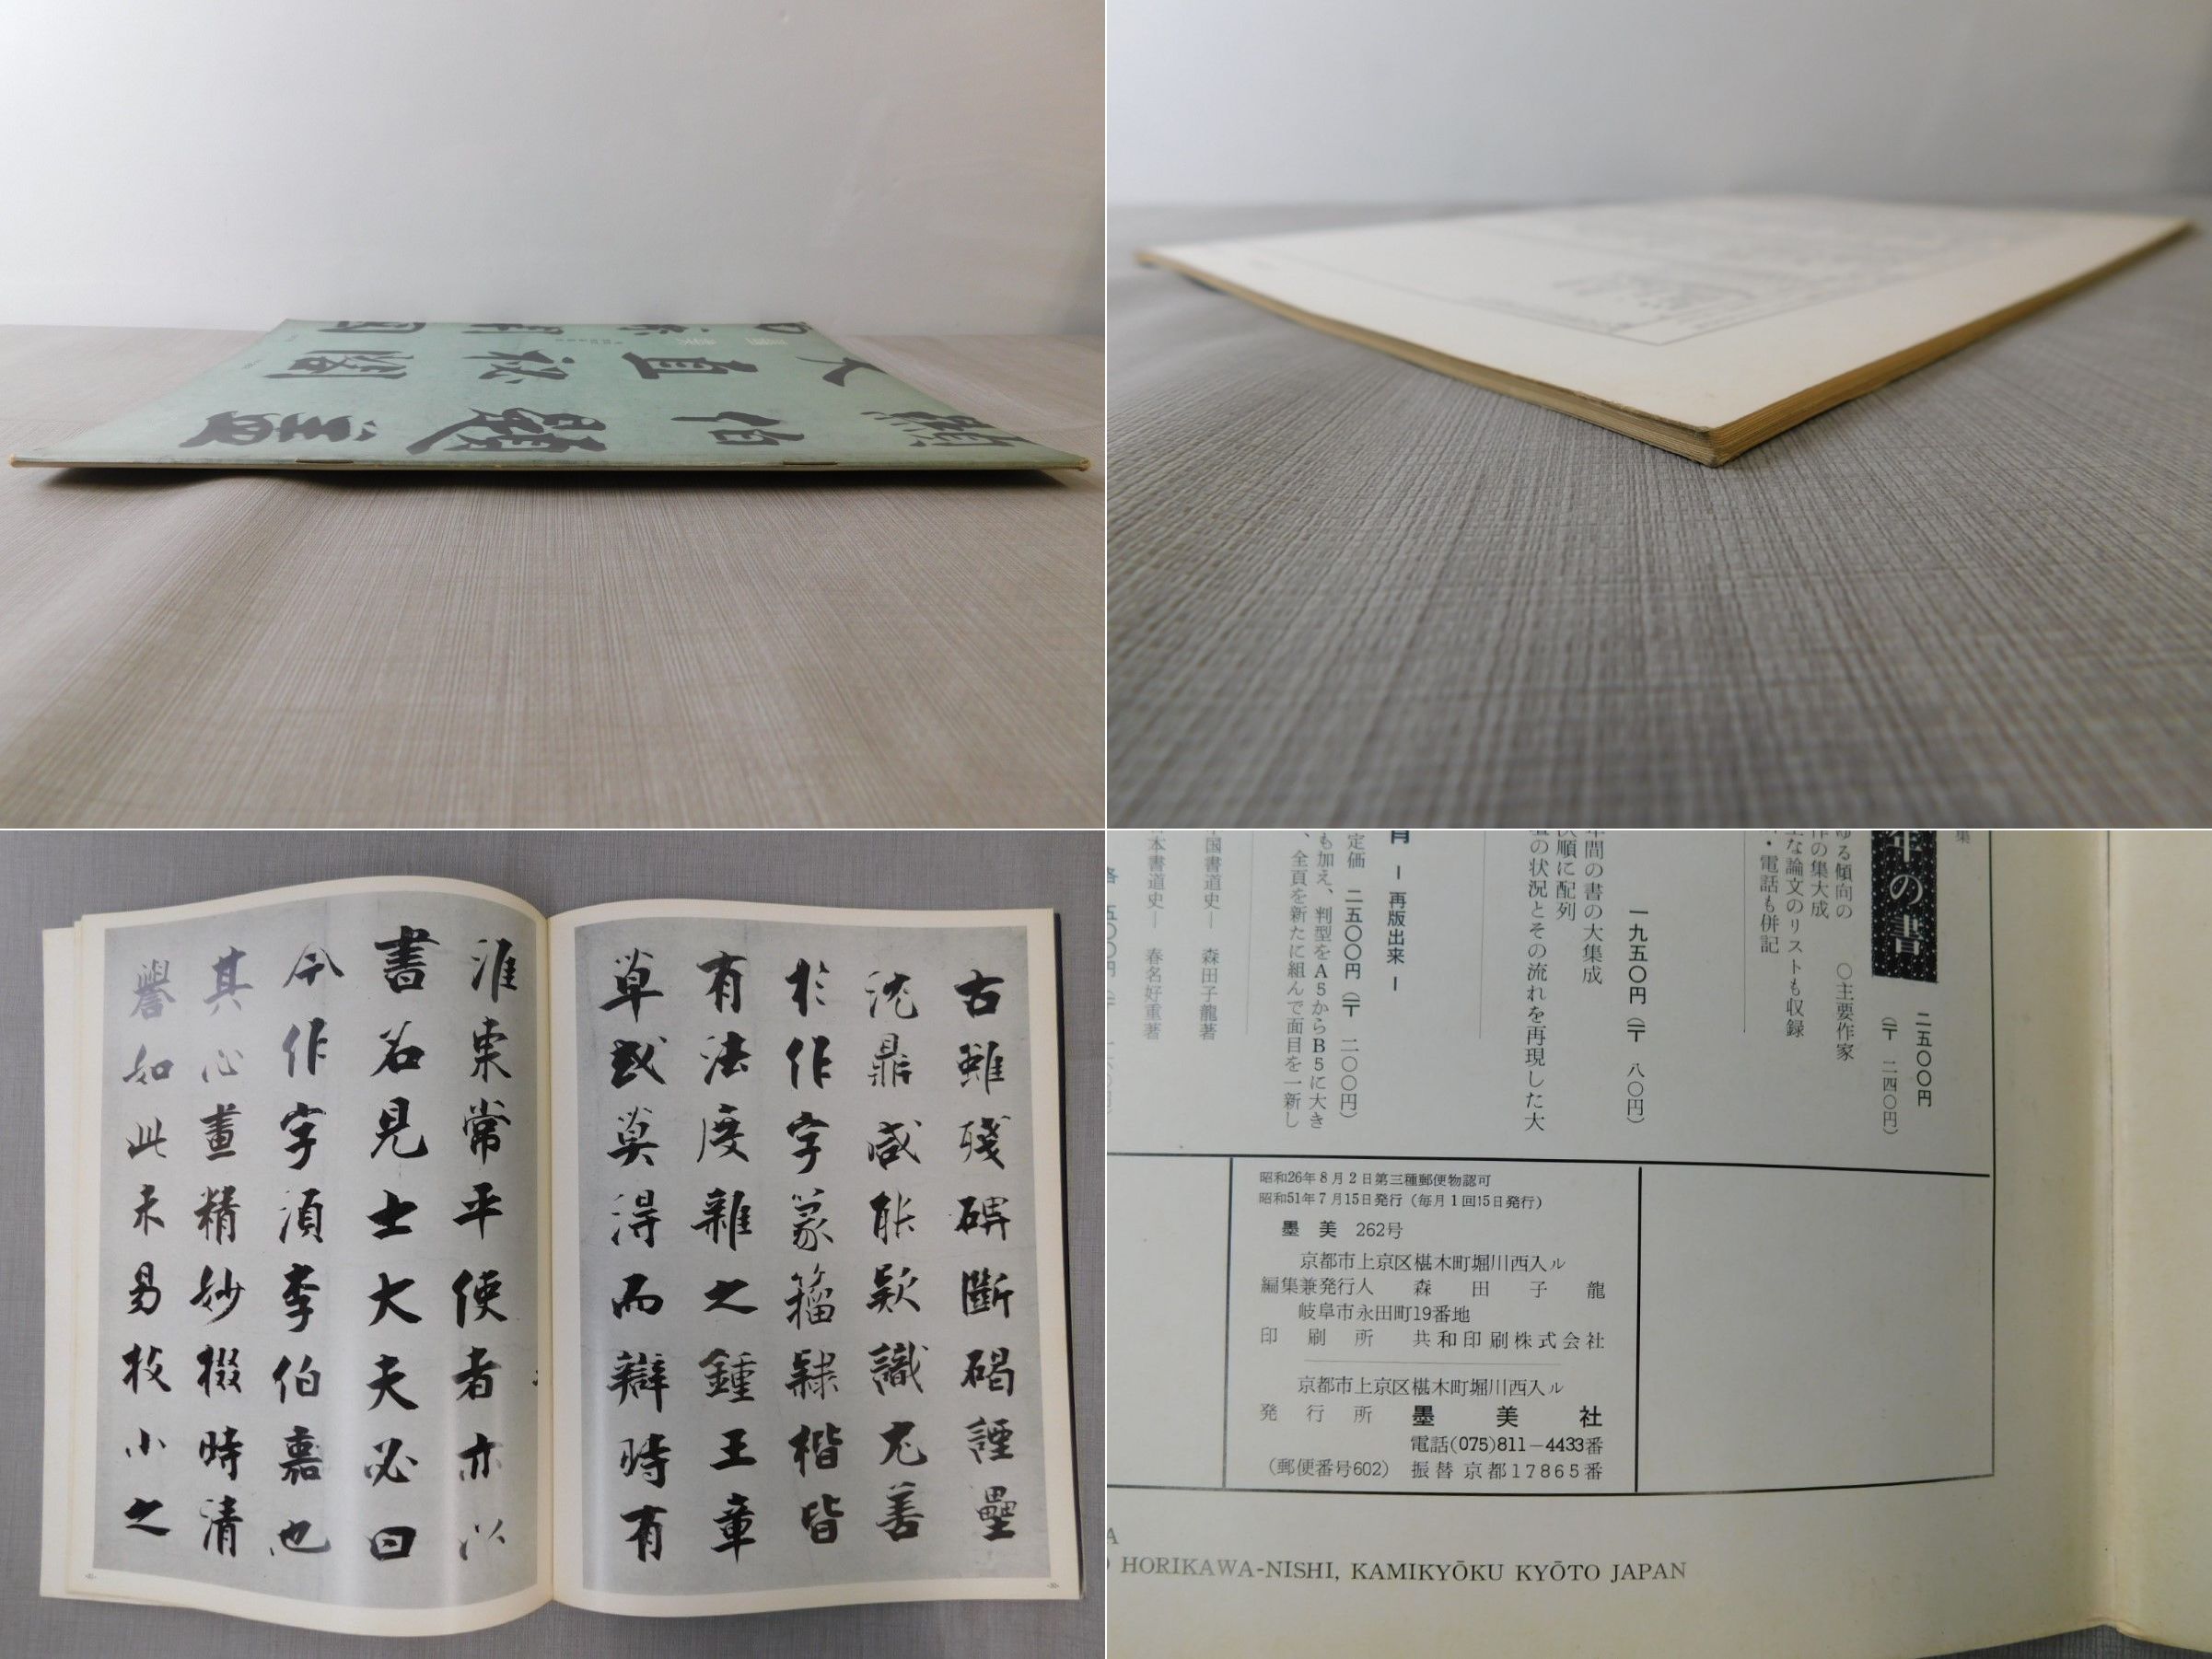 古雖殘碑斷碣諲壘
沈鼎咸能欵識尤善
於作字篆籀隸楷皆
有法度雜之鍾王章
草或莫得而辯時有
淮東常平使者亦以
書名見士大夫必曰
今作字須李伯嘉也
其心畫精妙掇時清
譽如此未易枚小之
年の書
二五〇〇円
(〒 二四〇円)
ゆる傾向の　〇主要作家
作の集大成
主な論文のリストも収録
・電話も併記
一九五〇円 (〒 八〇円)
年間の書の大集成
次順に配列
壇の状況とその流れを再現した大
― 再版出来 ―
定価 二五〇〇円 (〒 二〇〇円)
も加え、判型をA5からB5に大き
、全頁を新たに組んで面目を一新し
国書道史― 森田子龍著
本書道史― 春名好重著
昭和26年8月2日第三種郵便物認可
昭和51年7月15日発行（毎月1回15日発行）
墨 美 262号
京都市上京区椹木町堀川西入ル
編集兼発行人 森 田 子 龍
岐阜市永田町19番地
印 刷 所 共和印刷株式会社
京都市上京区椹木町堀川西入ル
発 行 所 墨 美 社
電話(075)811－4433番
（郵便番号602） 振替 京都17865番
HORIKAWA-NISHI, KAMIKYŌKU KYŌTO JAPAN